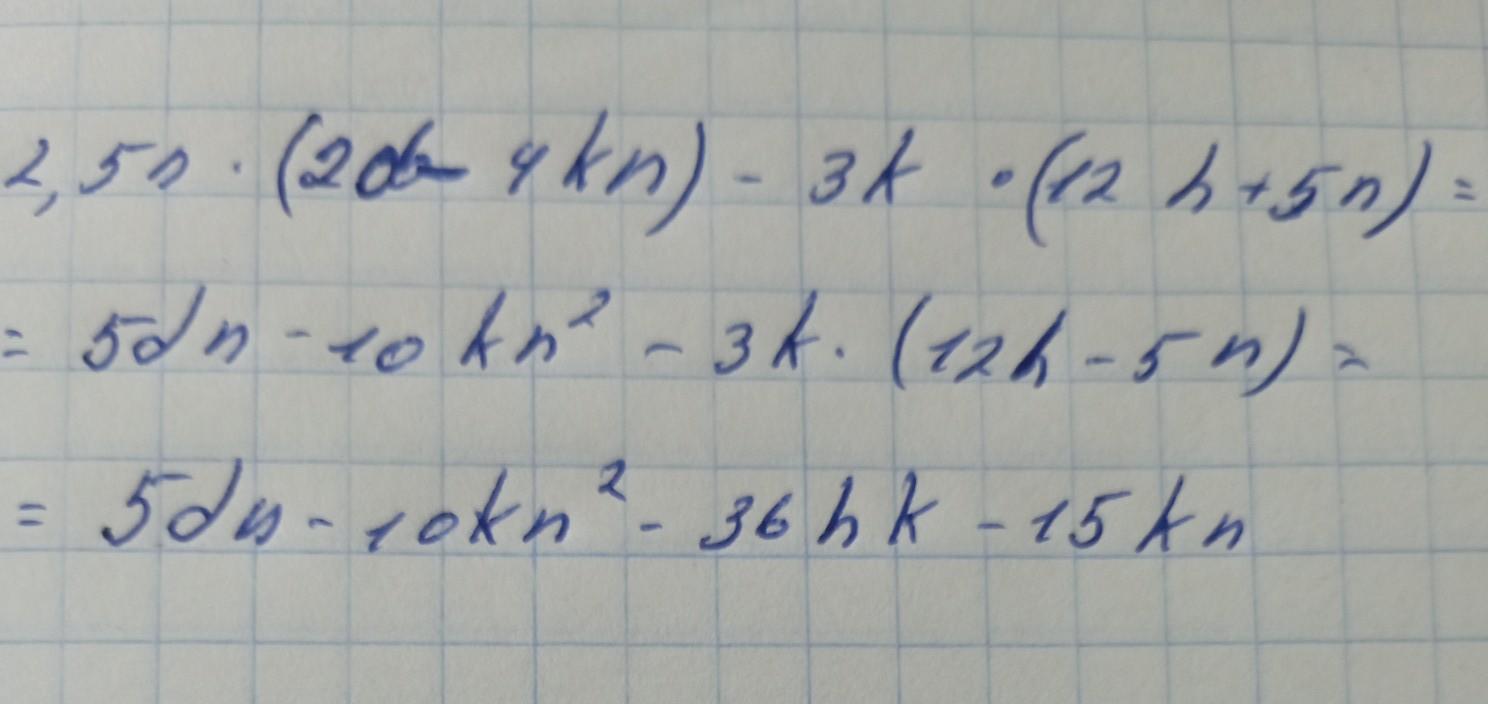 2,5n · (2d - 4kn) - 3k · (12h + 5n) =
= 5dn - 10kn² - 3k · (12h - 5n) =
= 5dn - 10kn² - 36hk - 15kn